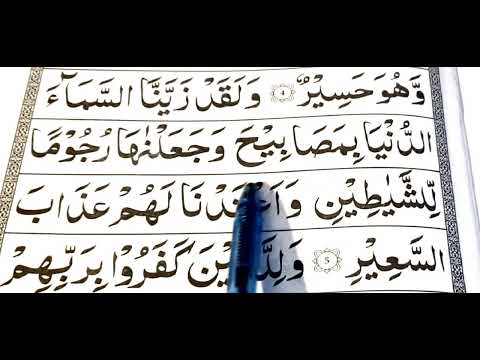 وَّهُوَ حَسِيْرٌ ۝4 وَلَقَدْ زَيَّنَّا السَّمَآءَ
الدُّنْيَا بِمَصَابِيْحَ وَجَعَلْنٰهَا رُجُوْمًا
لِّلشَّيٰطِيْنِ لَهُمْ عَذَابَ
السَّعِيْرِ ۝5 كَفَرُوْا بِرَبِّهِمْ